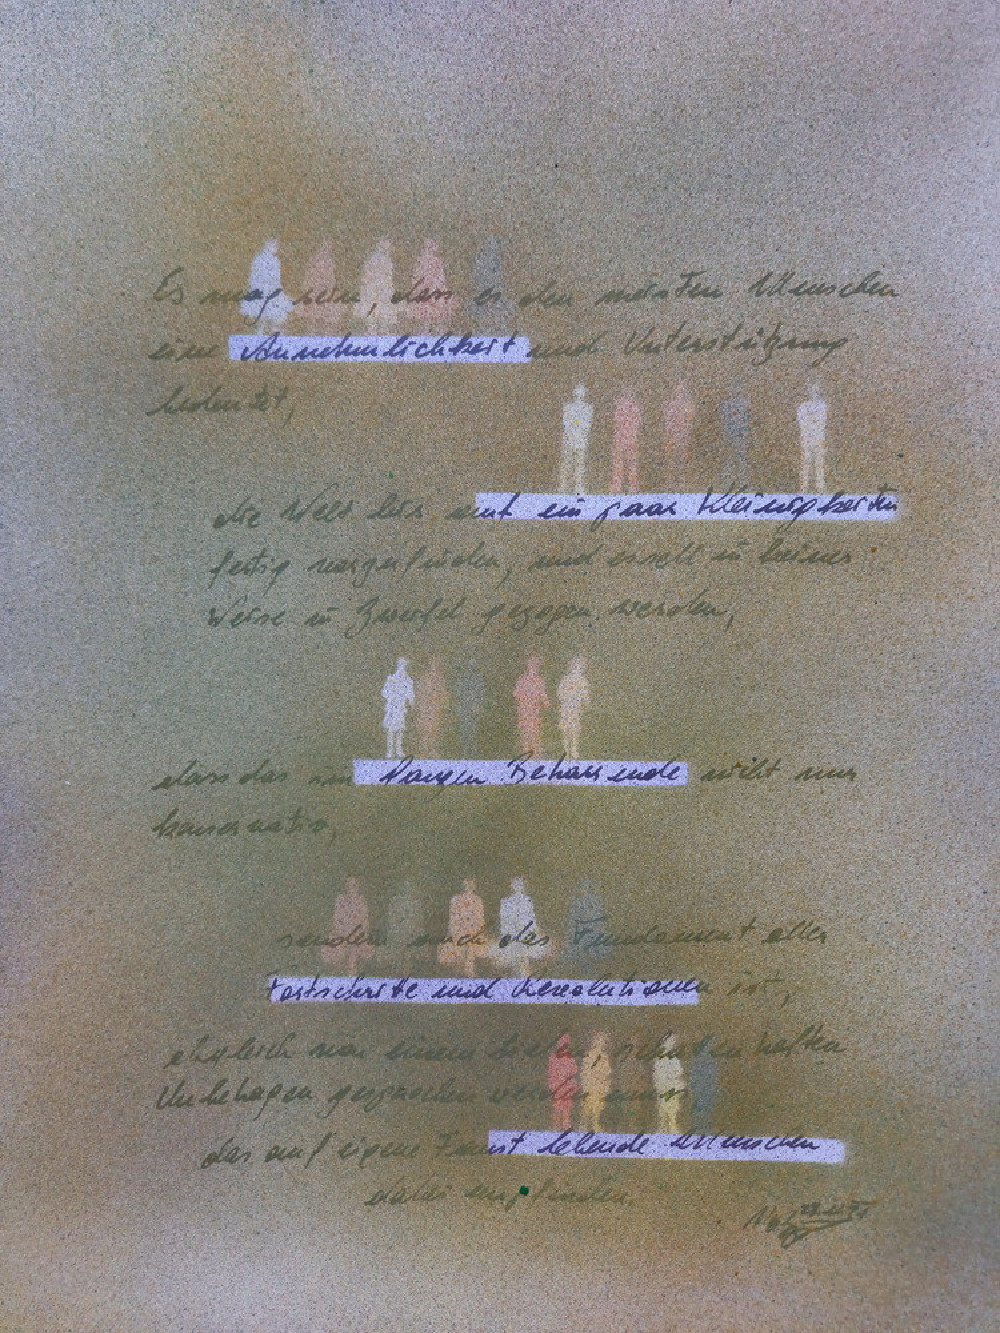 Es mag sein, dass es den meisten Menschen
eine Annehmlichkeit und Unterstützung
bedeutet,
die Welt bis auf ein paar Kleinigkeiten
fertig vorzufinden, und es soll in keiner
Weise in Zweifel gezogen werden,
dass das im Ganzen Beharrende nicht nur
konservativ,
sondern auch das Fundament aller
Fortschritte und Revolutionen ist,
obgleich von einem tiefen, schattenhaften
Unbehagen gesprochen werden muss
das auf eigene Faust lebende Menschen
dabei empfinden.